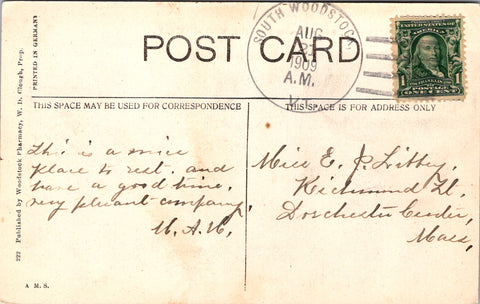 POST CARD
SOUTH WOODSTOCK
AUG
21
1909
A.M.
VT.
UNITED STATES OF AMERICA
FRANKLIN
1 1
POSTAGE
ONE CENT
THIS SPACE MAY BE USED FOR CORRESPONDENCE
THIS SPACE IS FOR ADDRESS ONLY
This is a nice
place to rest, and
have a good time,
very plesant company,
M. A. H.,
Miss E. P. Libbey,
Richmond St.
Dorchester Center,
Mass,
222 Published by Woodstock Pharmacy, W. D. Clough, Prop.
PRINTED IN GERMANY
A M S.